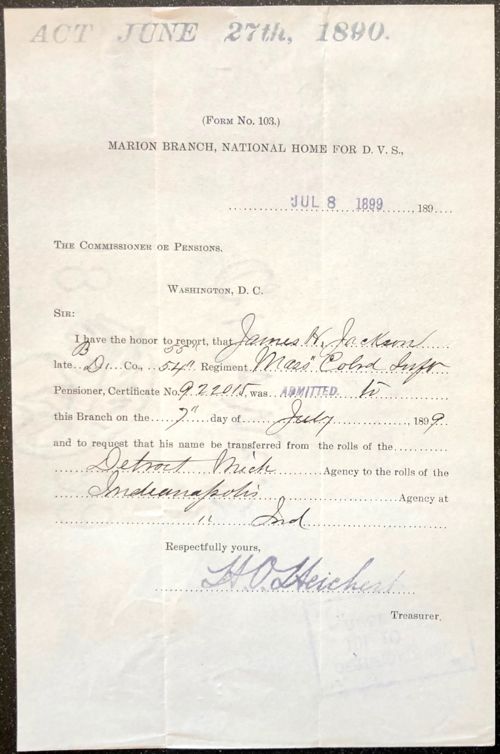 ACT JUNE 27th, 1890.
(Form No. 103.)
MARION BRANCH, NATIONAL HOME FOR D. V. S.,
JUL 8 1899 , 189
The Commissioner of Pensions.
Washington, D. C.
Sir:
I have the honor to report, that James H. Jackson
B 55
late D. Co., 54" Regiment Mass Colrd Inft
Pensioner, Certificate No. 922015, was ADMITTED to
this Branch on the 7" day of July 1899
and to request that his name be transferred from the rolls of the
Detroit Mich Agency to the rolls of the
Indianapolis Agency at
" Ind
Respectfully yours,
H. O. Heichert
Treasurer.